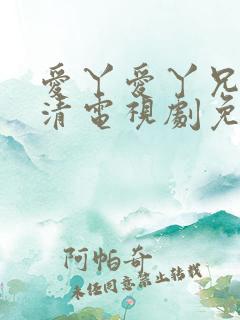 愛丫愛丫兄
清電視劇免
阿帕奇
未经同意禁止转载